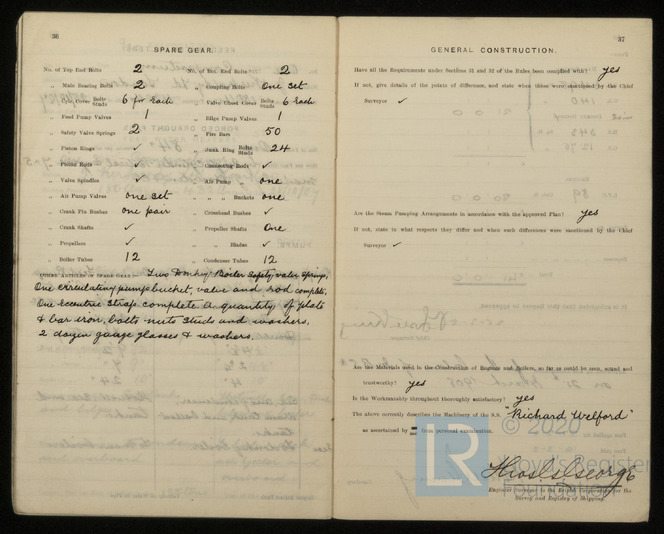 36
SPARE GEAR.
No. of Top End Bolts 2 No. of Bot. End Bolts 2
„ Main Bearing Bolts 2 „ Coupling Bolts One Set
„ Cyle Cover Bolts Studs 6 for Each „ Valve Chest Cover Bolts Studs 6 Each
„ Feed Pump Valves 1 „ Bilge Pump Valves 1
„ Safety Valve Springs 2 „ Fire Bars 50
„ Piston Rings ✓ „ Junk Ring Bolts Studs 24
„ Piston Rods ✓ „ Connecting Rods ✓
„ Valve Spindles ✓ „ Air Pump one
„ Air Pump Valves one set „ „ Buckets one
„ Crank Pin Bushes one pair „ Crosshead Bushes ✓
„ Crank Shafts ✓ „ Propeller Shafts One
„ Propellers ✓ „ „ Blades ✓
„ Boiler Tubes 12 „ Condenser Tubes 12
OTHER ARTICLES OF SPARE GEAR:— Two Donkey Boiler Safety valve springs,
One circulating pump bucket, valve and rod complete,
One eccentric strap complete A quantity of plate
& bar iron, bolts nuts studs and washers,
2 dozen gauge glasses & washers.
37
GENERAL CONSTRUCTION.
Have all the Requirements under Sections 31 and 32 of the Rules been complied with? yes
If not, give details of the points of difference, and state when these were sanctioned by the Chief
Surveyor ✓
Are the Steam Pumping Arrangements in accordance with the approved Plan? yes
If not, state in what respects they differ and when such differences were sanctioned by the Chief
Surveyor ✓
Are the Materials used in the Construction of Engines and Boilers, so far as could be seen, sound and
trustworthy? yes
Is the Workmanship throughout thoroughly satisfactory? yes
The above correctly describes the Machinery of the S.S. "Richard Welford"
as ascertained by from personal examination.
© 2020
LR
Lloyd's Register
Thos. S. George
Engineer Surveyor to the British Corporation for the
Survey and Registry of Shipping.